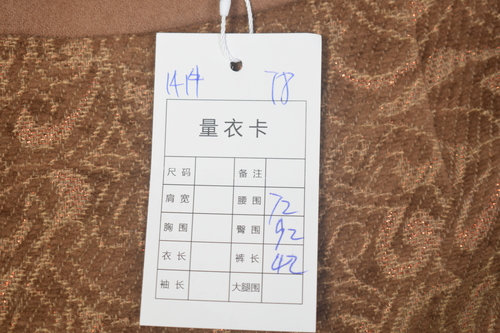 14件 78
量衣卡
尺码 备注
肩宽 腰围 72
胸围 臀围 92
衣长 裤长 42
袖长 大腿围